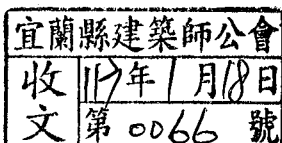 宜蘭縣建築師公會
收 年1月18日
文 第0066號